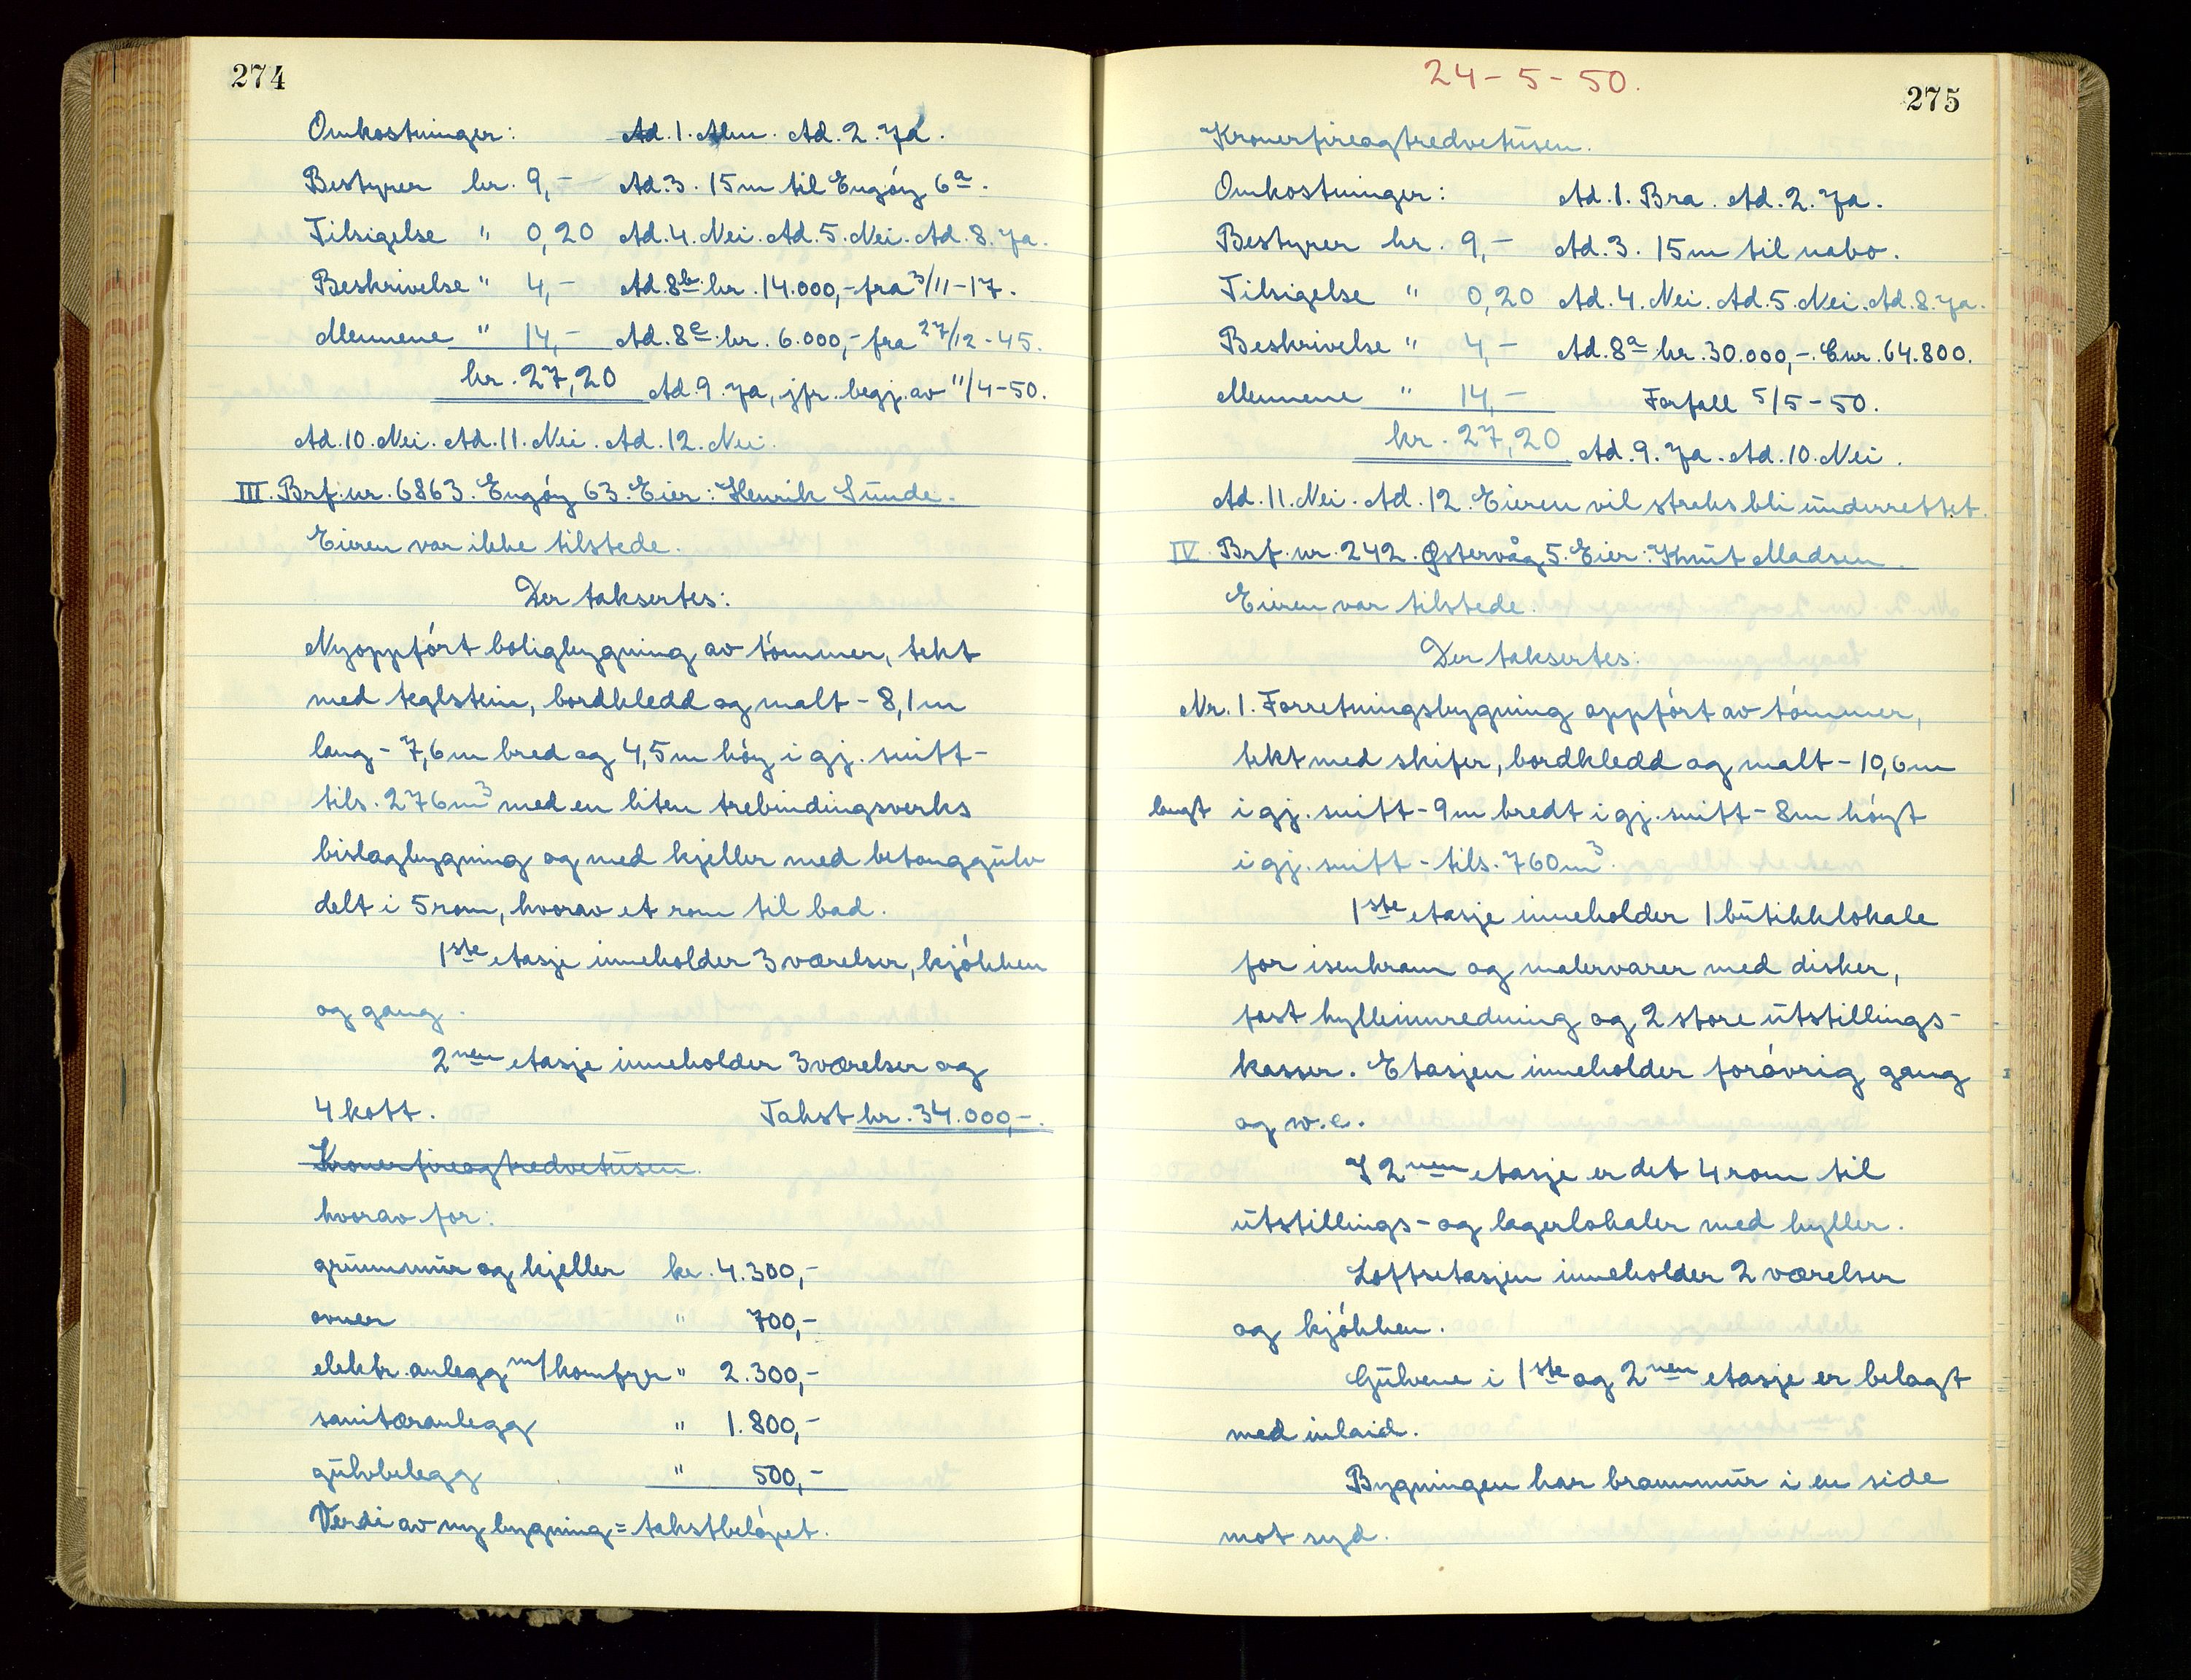 274
Omkostninger: Ad. 1. Alm. Ad. 2. Ja.
Bestyrer kr. 9,- Ad. 3. 15m til Engøy 6a.
Tilsigelse " 0,20 Ad. 4. Nei. Ad. 5. Nei. Ad. 8. Ja.
Beskrivelse " 4,- Ad. 8b kr. 14.000,- fra 3/11-17.
Mennene " 14,- Ad. 8c kr. 6.000,- fra 27/12-45.
kr. 27,20 Ad. 9. Ja, jfr. begj. av 11/4-50.
Ad. 10. Nei. Ad. 11. Nei. Ad. 12. Nei.
III. Brf. nr. 6863. Engøy 63. Eier: Henrik Sunde.
Eieren var ikke tilstede.
Der taksertes:
Nyoppført boligbygning av tømmer, tekt
med teglstein, bordkledd og malt - 8,1m
lang - 7,6m bred og 4,5m høy i gj. snitt -
tils. 276m³ med en liten trebindingsverks
bislagbygning og med kjeller med betonggulv
delt i 5 rom, hvorav et rom til bad.
1ste etasje inneholder 3 værelser, kjøkken
og gang.
2nen etasje inneholder 3 værelser og
4 kott. Takst kr. 34.000,-.
Kronerfireogtredvetusen.
hvorav for:
grunnmur og kjeller kr. 4.300,-
ovner " 700,-
elektr. anlegg m/komfyr " 2.300,-
sanitæranlegg " 1.800,-
gulvbelegg " 500,-
Verdi av ny bygning = takstbeløpet.
24-5-50.
275
Kronerfireogtredvetusen.
Omkostninger: Ad. 1. Bra. Ad. 2. Ja.
Bestyrer kr. 9,- Ad. 3. 15m til nabo.
Tilsigelse " 0,20 Ad. 4. Nei. Ad. 5. Nei. Ad. 8. Ja.
Beskrivelse " 4,- Ad. 8a kr. 30.000,-. C. nr. 64.800.
Mennene " 14,- Forfall 5/5-50.
kr. 27,20 Ad. 9. Ja. Ad. 10. Nei.
Ad. 11. Nei. Ad. 12. Eieren vil straks bli underrettet.
IV. Brf. nr. 242. Østervåg 5. Eier: Knut Madsen.
Eieren var tilstede.
Der taksertes:
Nr. 1. Forretningsbygning oppført av tømmer,
tekt med skifer, bordkledd og malt - 10,6m
langt i gj. snitt - 9m bredt i gj. snitt - 8m høyt
i gj. snitt - tils. 760m³.
1ste etasje inneholder 1 butikklokale
for isenkram og malervarer med disker,
fast hylleinnredning og 2 store utstillings-
kasser. Etasjen inneholder forøvrig gang
og w.c.
I 2nen etasje er det 4 rom til
utstillings- og lagerlokaler med hyller.
Loftsetasjen inneholder 2 værelser
og kjøkken.
Gulvene i 1ste og 2nen etasje er belagt
med inlaid.
Bygningen har brannmur i en side
mot syd.